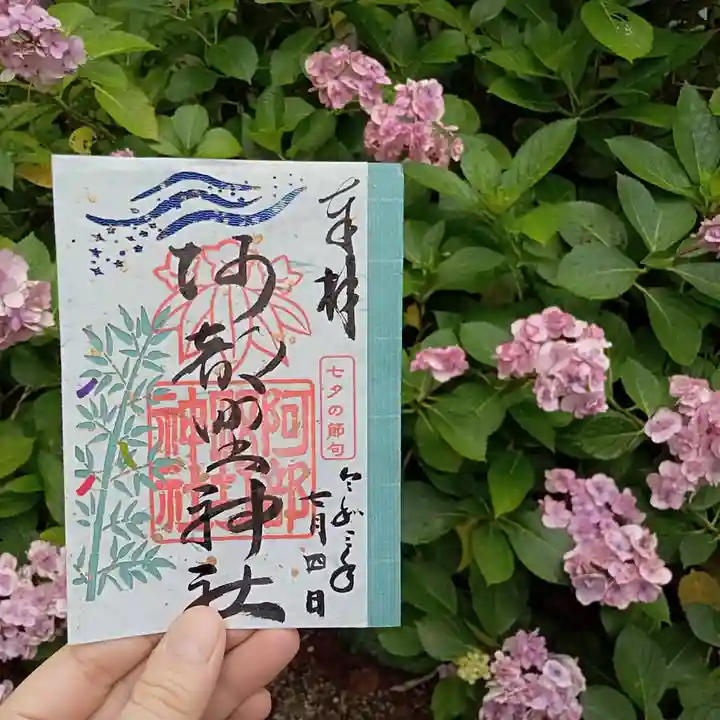 奉拝
七夕の節句
令和三年
七月四日
阿部野神社
阿部
神社